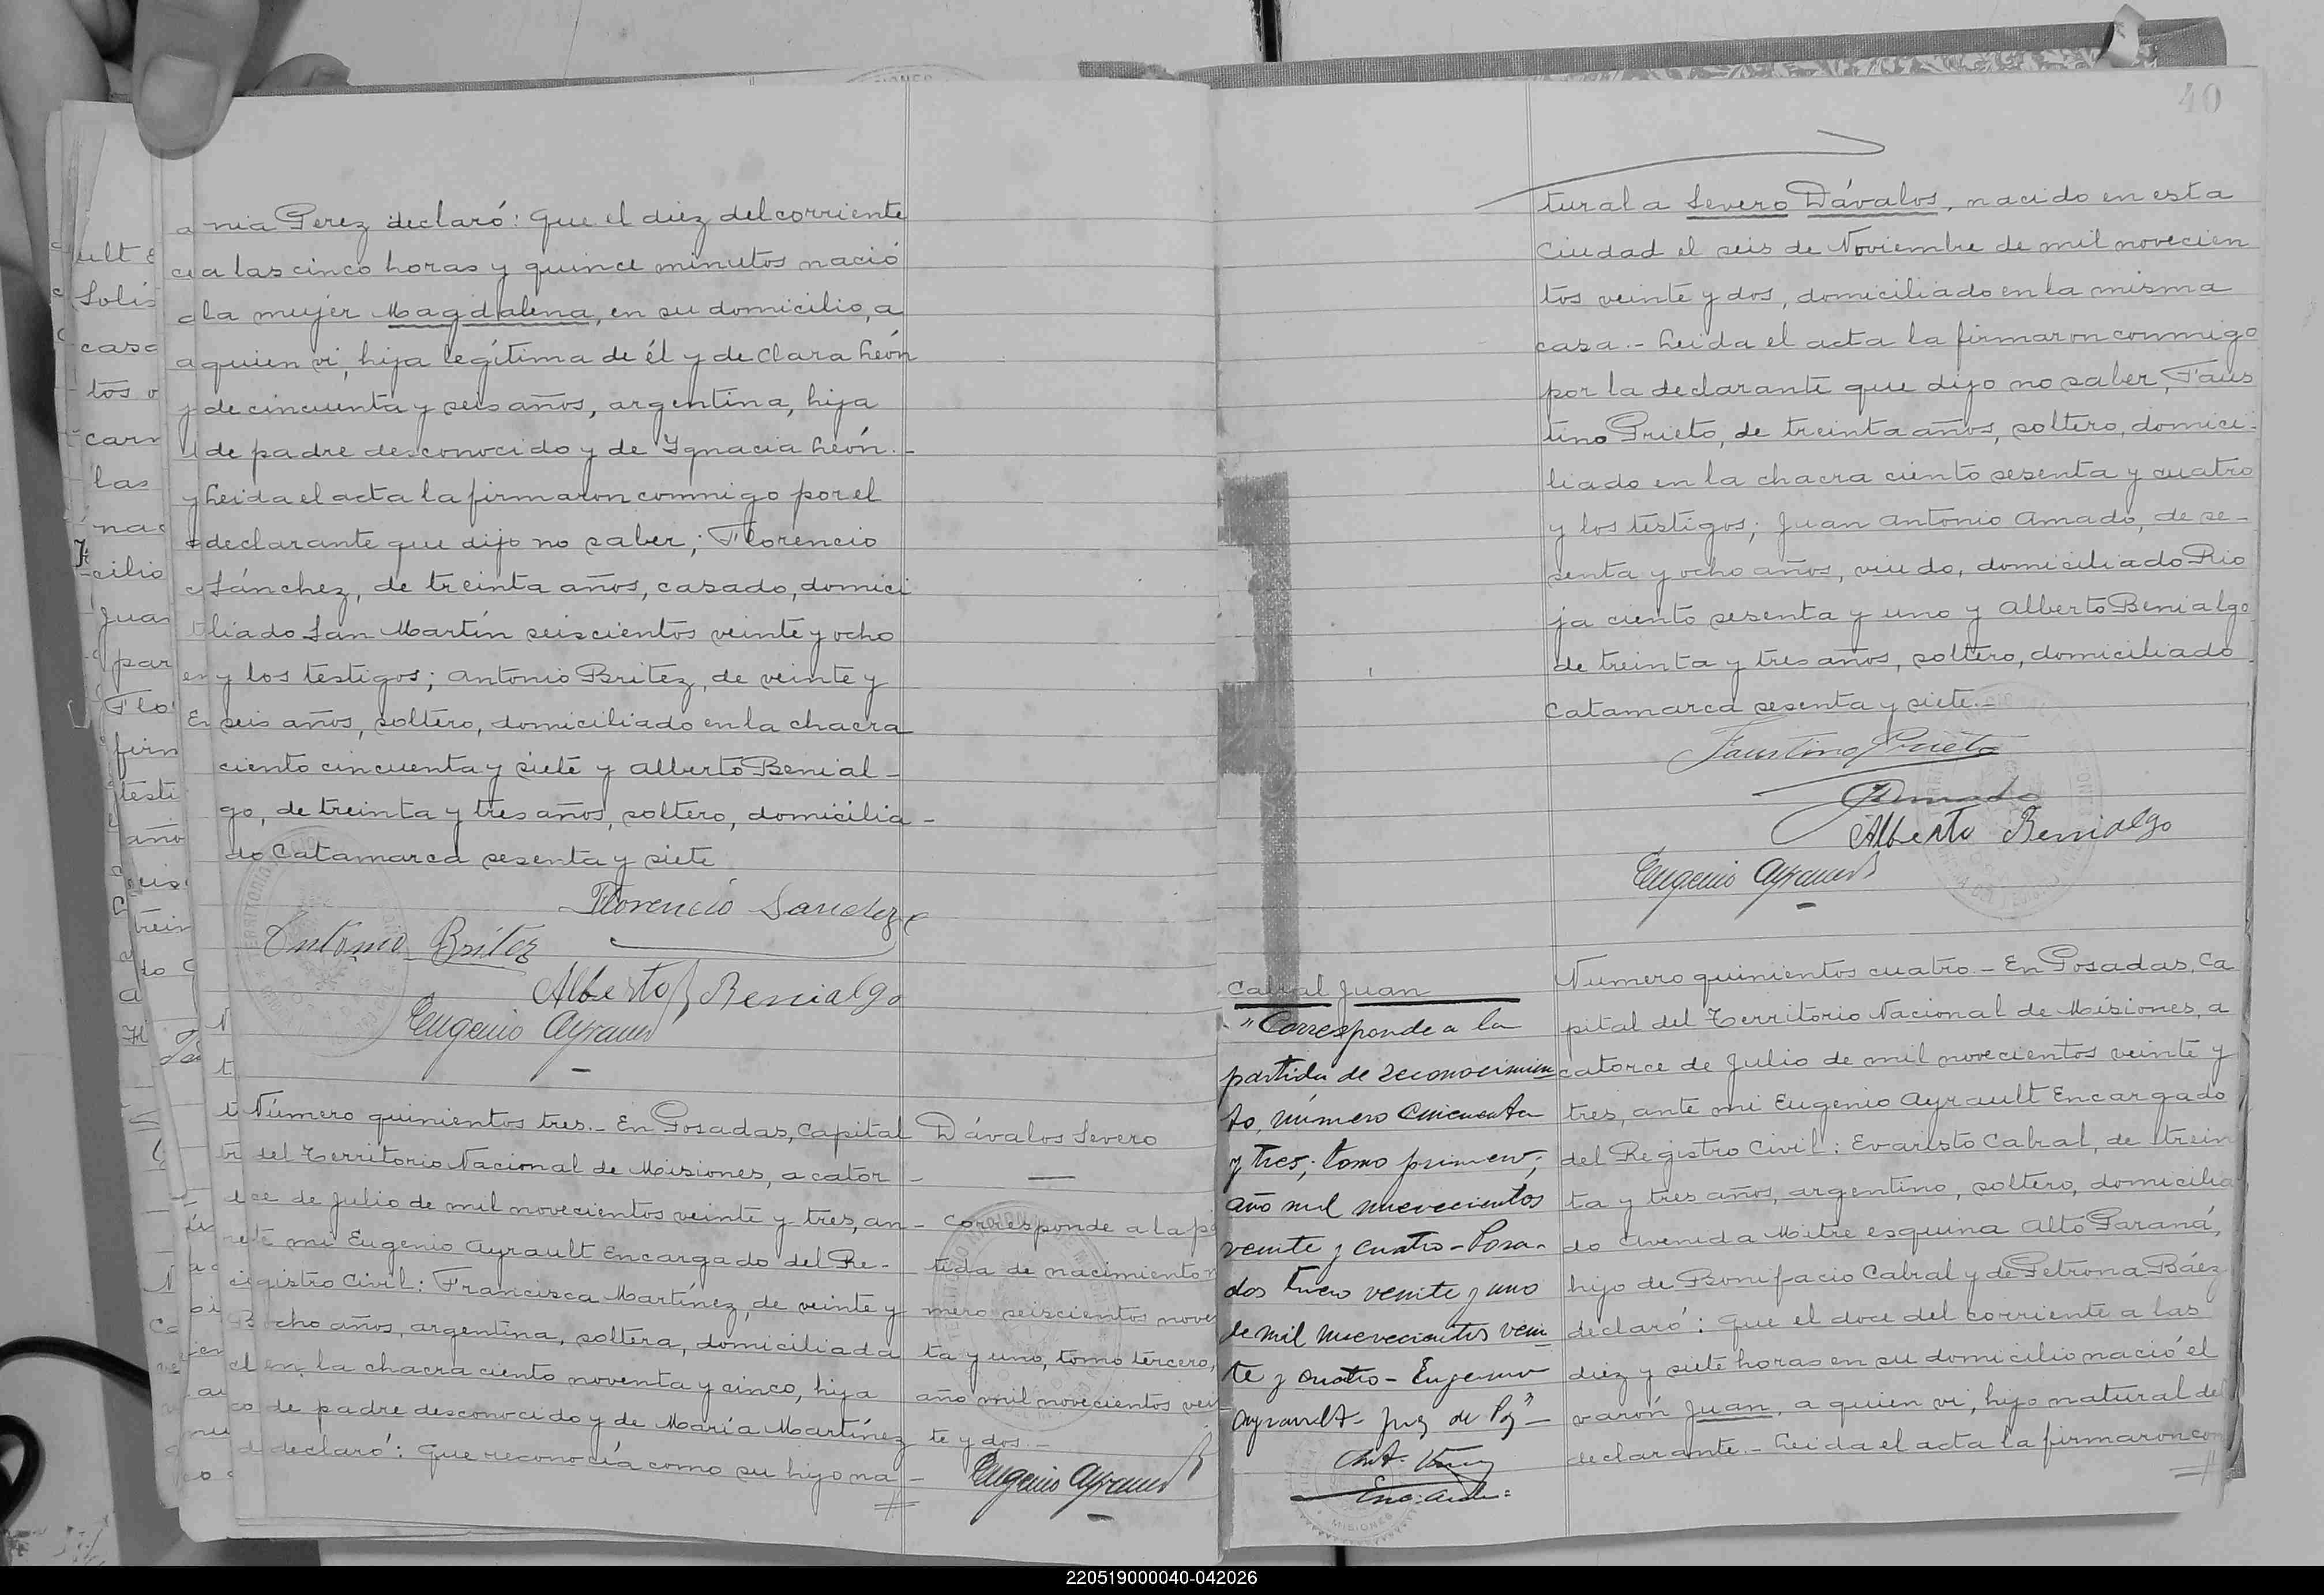 nia Perez declaró: Que el diez del corriente
a las cinco horas y quince minutos nació
la mujer Magdalena, en su domicilio, a
quien vi, hija legítima de él y de Clara León
de cincuenta y seis años, argentina, hija
de padre desconocido y de Ygnacia León.-
Leida el acta la firmaron conmigo por el
declarante que dijo no saber; Florencio
Sánchez, de treinta años, casado, domici
liado San Martín seiscientos veinte y ocho
y los testigos; Antonio Britez, de veinte y
seis años, soltero, domiciliado en la chacra
ciento cincuenta y siete y Alberto Benial-
go, de treinta y tres años, soltero, domicilia-
do Catamarca sesenta y siete
Florencio Sanchez
Antonio Britez
Alberto Benialgo
Eugenio Ayrault
Número quinientos tres.- En Posadas, Capital
del Territorio Nacional de Misiones, a cator-
ce de Julio de mil novecientos veinte y tres, an-
te mi Eugenio Ayrault Encargado del Re-
gistro Civil: Francisca Martínez, de veinte y
ocho años, argentina, soltera, domiciliada
en la chacra ciento noventa y cinco, hija
de padre desconocido y de María Martínez
declaró: Que reconocía como su hijo na-
Dávalos Severo
Corresponde a la p
tida de nacimiento n
mero seiscientos nove
ta y uno, tomo tercero,
año mil novecientos vei
te y dos.-
Eugenio Ayrault
40
tural a Severo Dávalos, nacido en esta
Ciudad el seis de Noviembre de mil novecien
tos veinte y dos, domiciliado en la misma
casa.- Leida el acta la firmaron conmigo
por la declarante que dijo no saber, Faus
tino Prieto, de treinta años, soltero, domici-
liado en la chacra ciento sesenta y cuatro
y los testigos; Juan Antonio Amado, de se-
senta y ocho años, viudo, domiciliado Rio
ja ciento sesenta y uno y Alberto Benialgo
de treinta y tres años, soltero, domiciliado
Catamarca sesenta y siete.-
Faustino Prieto
JAmado
Alberto Benialgo
Eugenio Ayrault
Cabral Juan
"Corresponde a la
partida de reconocimien
to, número cincuenta
y tres; tomo primero;
año mil nuevecientos
veinte y cuatro- Posa-
das Enero veinte y uno
de mil nuevecientos vein
te y cuatro- Eugenio
Ayrault- Juez de Paz"-
MISIONES
Numero quinientos cuatro.- En Posadas, Ca
pital del Territorio Nacional de Misiones, a
catorce de Julio de mil novecientos veinte y
tres, ante mi Eugenio Ayrault Encargado
del Registro Civil: Evaristo Cabral, de trein
ta y tres años, argentino, soltero, domicilia
do Avenida Mitre esquina Alto Paraná,
hijo de Bonifacio Cabral y de Petrona Báez
declaró: Que el doce del corriente a las
diez y siete horas en su domicilio nació el
varón Juan, a quien vi, hijo natural del
declarante.- Leida el acta la firmaron con
220519000040-042026